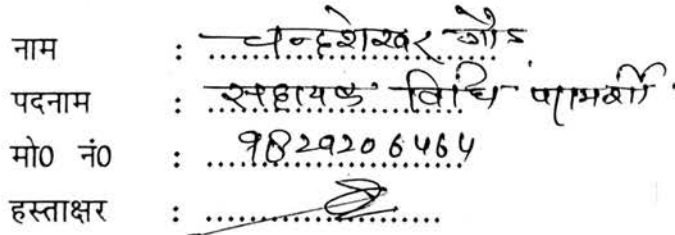 नाम : चन्द्रशेखर गौड
पदनाम : सहायक विधि परामर्शी
मो0 नं0 : 9829206464
हस्ताक्षर :